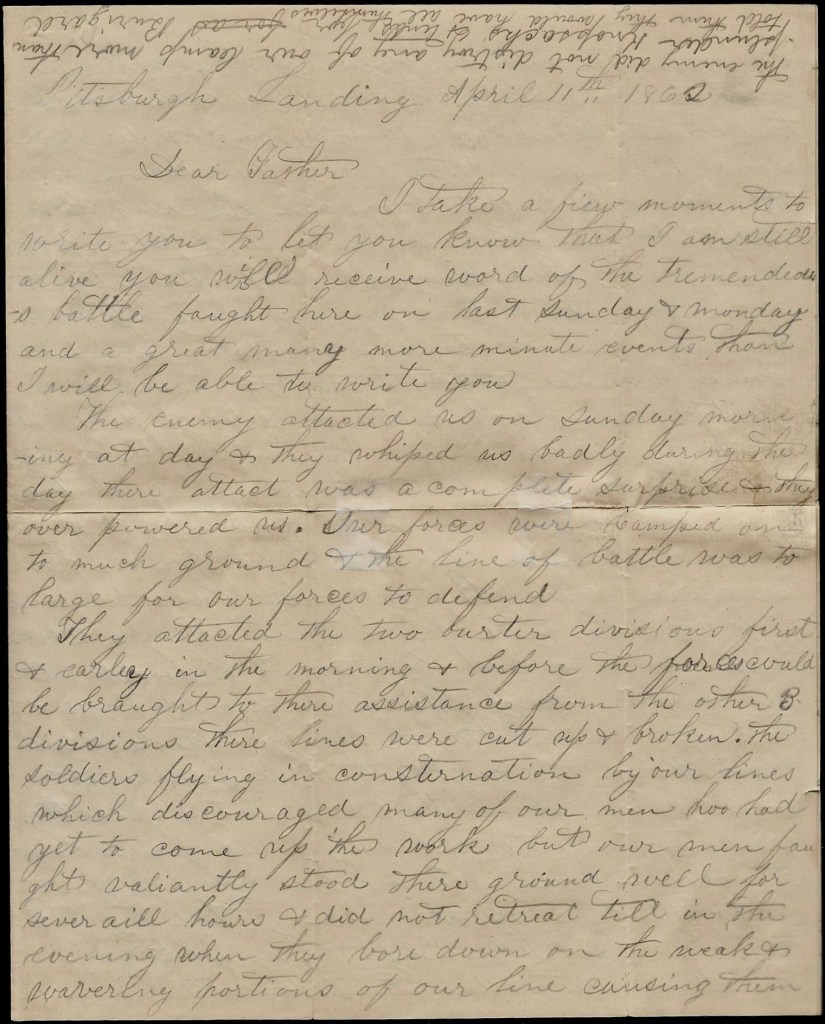 The enemy did not distroy any of our Camp more than
plunder Knapsacks &
told them they would have all
Burigard
Pitsburgh Landing April 11th 1862
Dear Father
I take a fiew moments to
write you to let you know that I am still
alive you will receive word of the tremendeou
-s battle faught here on last Sunday & monday
and a great many more minute events than
I will be able to write you
The enemy attacted us on Sunday morn
-ing at day & they whiped us badly during the
day there attact was a complete surprise & they
over powered us. Our forces were camped on
to much ground & the line of battle was to
large for our forces to defend
They attacted the two ourter divisions first
& earley in the morning & before the forces could
be braught to there assistance from the other 3
divisions there lines were cut up & broken. the
soldiers flying in consternation by our lines
which discouraged many of our men hoo had
yet to come up to the work but our men fau
ght valiantly stood there ground well for
severaill hours & did not retreat till in the
evening when they bore down on the weak &
wavering portions of our line causing them